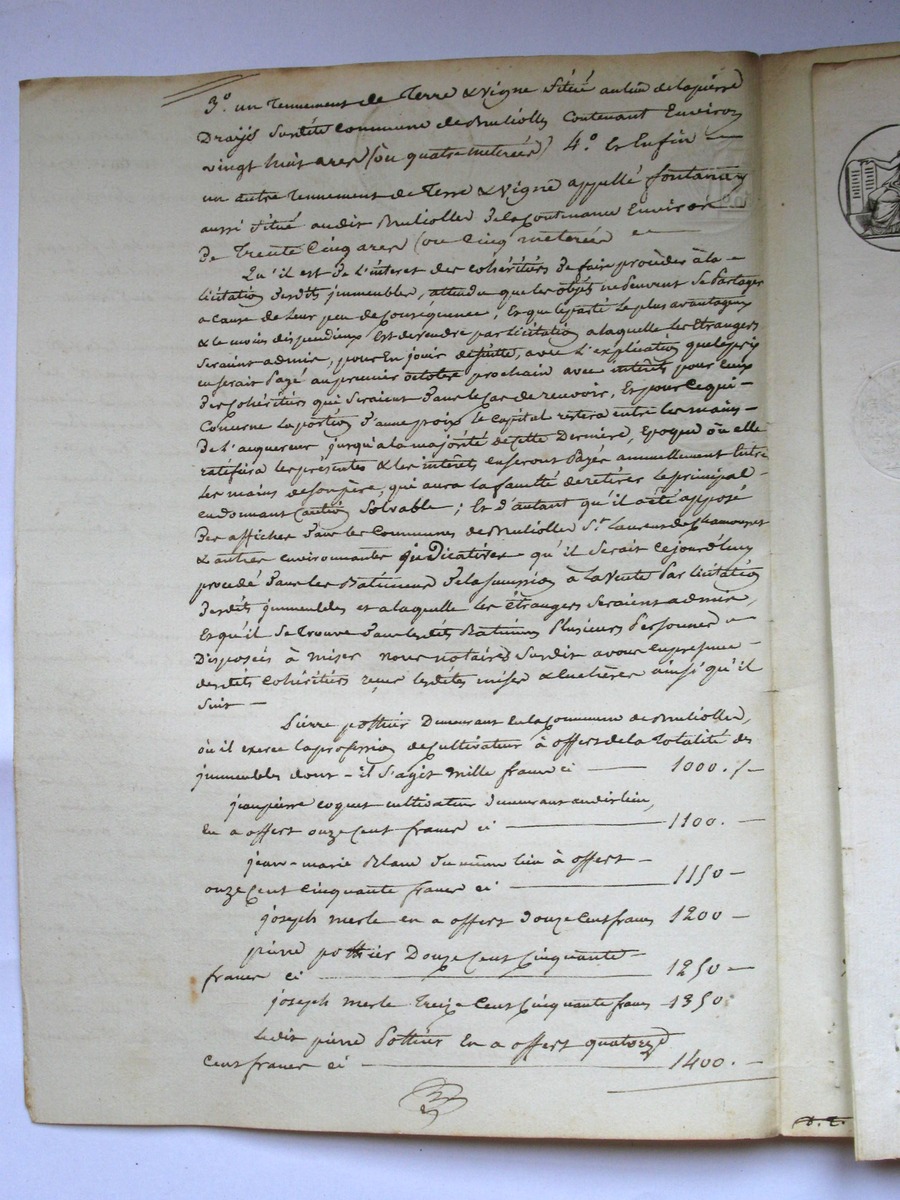 3.º un Tennement de Terre & vigne Situé au lieu de lapierre
Susdite Commune de Brulliolles Contenant Environ
vingt huit ares (ou quatre meterées) 4.º Et Enfin
un autre Tennement de Terre & vigne appellé fontanay
aussi Situé audit Brulliolles de la Contenance Environ
De Trente Cinq ares (ou Cinq meterées
Qu'il est de l'interet des cohéritiers de faire procéder à la
licitation desdits jmmeubles, attendu que les objets ne peuvent Se Partager
a cause de leur peu de Consequence, Et que le parti le plus avantageux
& le moins dispendieux Est de vendre par licitation a laquelle les Etrangers
Seraient admis, pour En jouir de suitte, avec l'explication que le prix
en serait Payé au premier octobre prochain avec interêts pour Ceux
Des Cohéritiers qui Seraient dans le Cas de recevoir, Et pour Ce qui
Concerne la portion d'anne le Capital restera entre les mains
De l'acquereur jusqu'a la majorité de cette Derniere, Epoque où elle
ratifira les présentes & les interêts en seront Payés annuellement Entre
les mains de son père, qui aura la faculté de retirer le principal
en donnant Caution Solvable; Et d'autant qu'il a été apposé
Des affiches dans les Communes de Brulliolles S.t Laurent de Chamousset
& autres environnantes jndicatives qu'il Serait Cejourd'huy
procédé dans les Batimens de la Succession à la Vente Par licitation
desdits jmmeubles et a laquelle les étrangers Seraient admis,
Et qu'il Se Trouve dans lesdits Batimens Plusieurs Personnes
Disposées à miser, nous notaires Susdit avons en presence
desdits Cohéritiers reçu lesdites mises & encheres ainsi qu'il
Suit
Pierre pothier Demeurant En la Commune de Brulliolles,
où il exerce la profession de Cultivateur à offert de la Totalité des
jmmeubles dont il S'agit Mille francs ci 1000.
jean pierre coquet cultivateur demeurant audit lieu,
En a offert onze Cent francs ci 1100.
jean-marie Blanc du même lieu à offert
onze Cent Cinquante francs ci 1150
joseph merle en a offert Douze Cent francs 1200
pierre pothier Douze Cent Cinquante
francs ci 1250
joseph merle Treize Cent Cinquante francs 1350
Ledit pierre Pothier En a offert quatorze
Cent francs ci 1400.